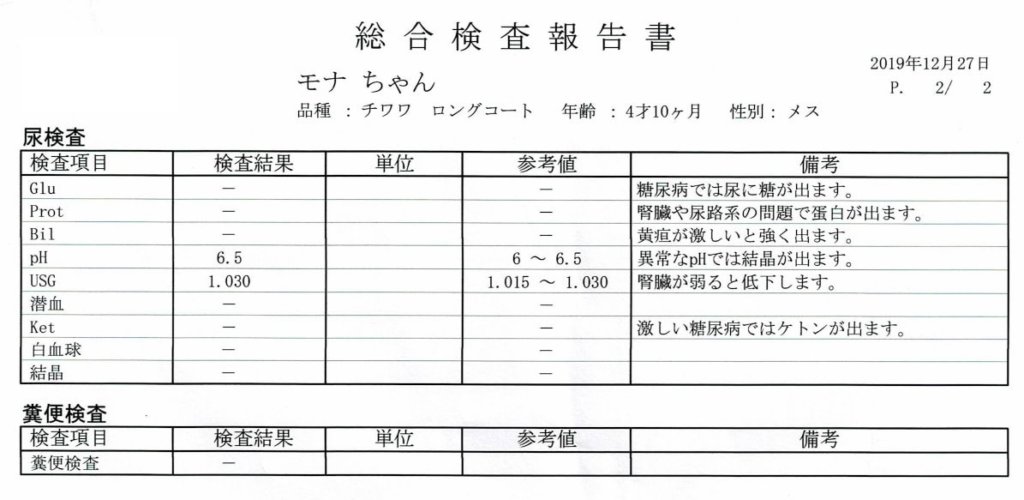 総合検査報告書
2019年12月27日
モナ ちゃん
P. 2/ 2
品種 : チワワ ロングコート 年齢 : 4才10ヶ月 性別 : メス
尿検査
検査項目 検査結果 単位 参考値 備考
Glu － － 糖尿病では尿に糖が出ます。
Prot － － 腎臓や尿路系の問題で蛋白が出ます。
Bil － － 黄疸が激しいと強く出ます。
pH 6.5 6 ～ 6.5 異常なpHでは結晶が出ます。
USG 1.030 1.015 ～ 1.030 腎臓が弱ると低下します。
潜血 － －
Ket － － 激しい糖尿病ではケトンが出ます。
白血球 － －
結晶 － －
糞便検査
検査項目 検査結果 単位 参考値 備考
糞便検査 －